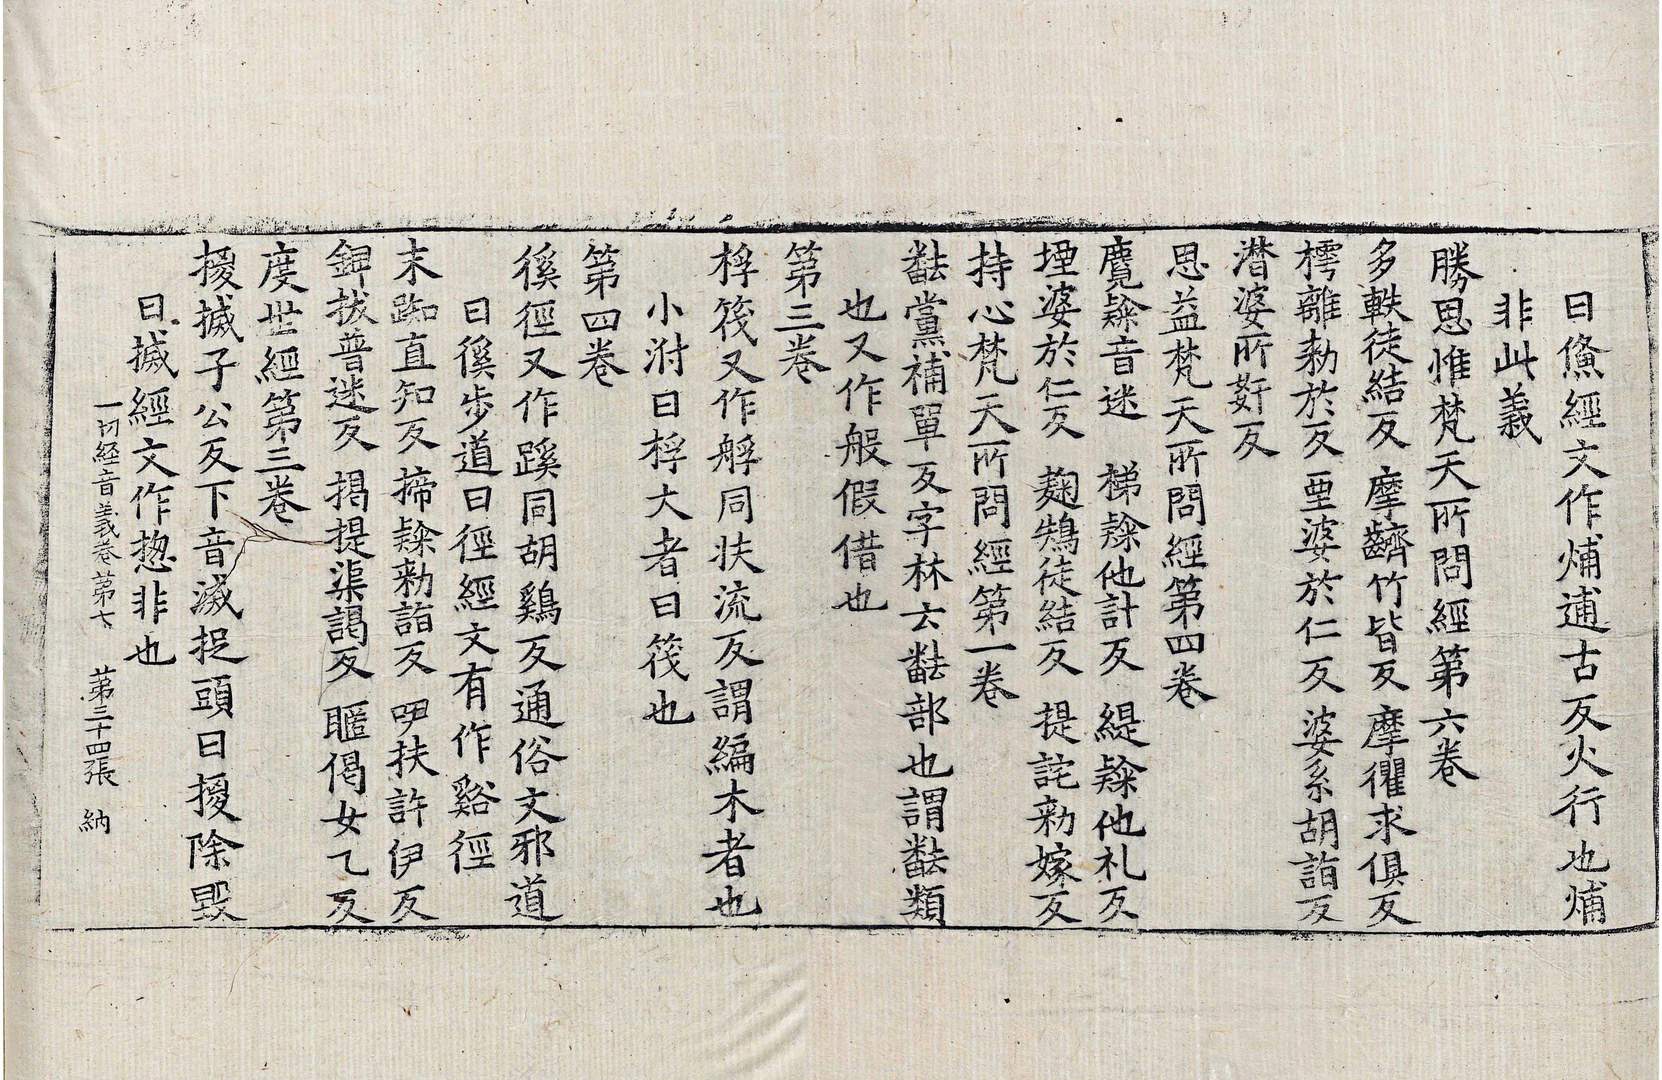 曰䱙經文作焴逋古反火行也焴
非此義
勝思惟梵天所問經第六卷
多軼徒結反 摩齌竹皆反 摩㦜求俱反
樗離勑於反 垔婆於仁反 婆系胡詣反
潛婆所姧反
思益梵天所問經第四卷
麑䚷音迷 梯䚷他計反 緹䚷他札反
堙婆於仁反 麹鴩徒結反 提詫勑嫁反
持心梵天所問經第一卷
黨補單反字林云部也謂類
也又作般假借也
第三卷
桴筏又作艀同扶流反謂編木者也
小泭曰桴大者曰筏也
第四卷
徯徑又作蹊同胡鷄反通俗文邪道
曰徯步道曰徑經文有作谿徑
末踟直知反 揥䚷勑詣反 呬扶許伊反
錍拔普迷反 揭提渠謁反 暱偈女乙反
度世經第三卷
揠搣子公反下音滅捉頭曰揠除毀
曰搣經文作揔非也
一切經音義卷第七 第三十四張 納